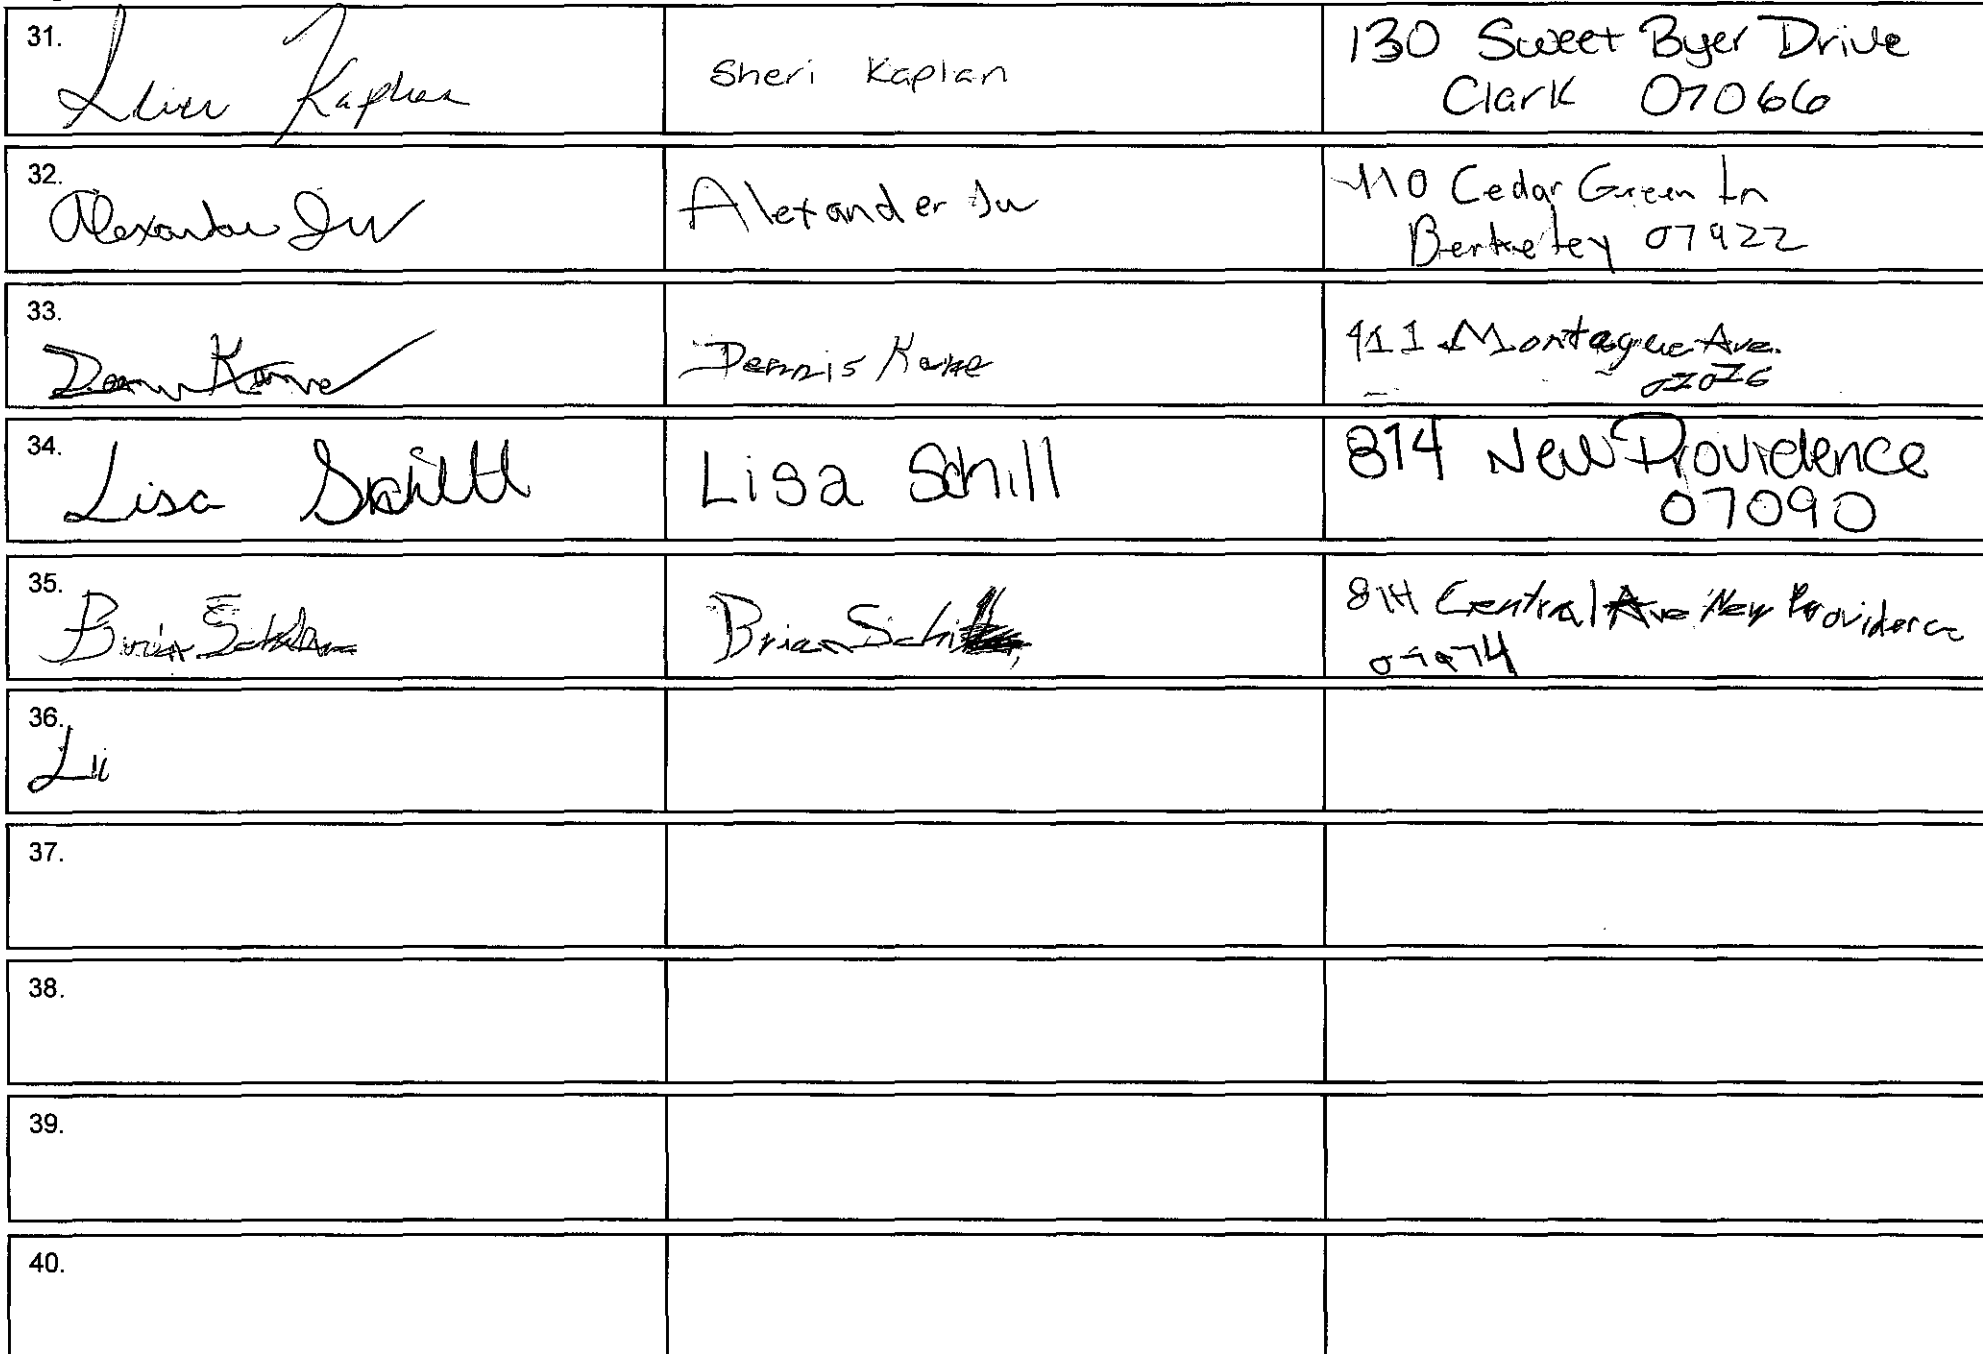 31.
Kaplan
Sheri Kaplan
130 Sweet Byer Drive
Clark 07066
32.
Alexander Ju
Alexander Ju
110 Cedar Green Ln
Berkeley 07922
33.
Dennis Kane
411 Montague Ave.
07076
34.
Lisa Schill
Lisa Schill
814 New Providence
07090
35.
Brian
Brian Schill
814 Central Ave New Providence
07974
36.
Li
37.
38.
39.
40.